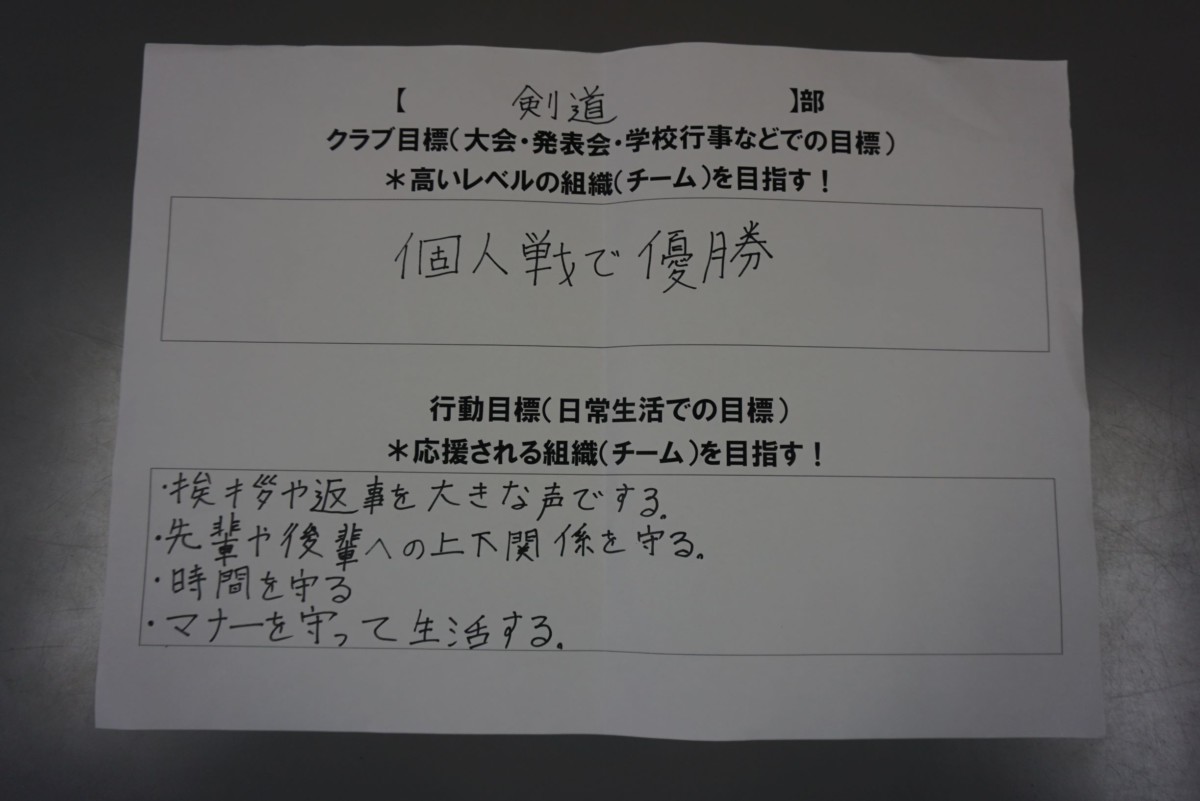 【 剣道 】部
クラブ目標(大会・発表会・学校行事などでの目標)
＊高いレベルの組織(チーム)を目指す！
個人戦で優勝
行動目標(日常生活での目標)
＊応援される組織(チーム)を目指す！
・挨拶や返事を大きな声でする。
・先輩や後輩への上下関係を守る。
・時間を守る
・マナーを守って生活する。